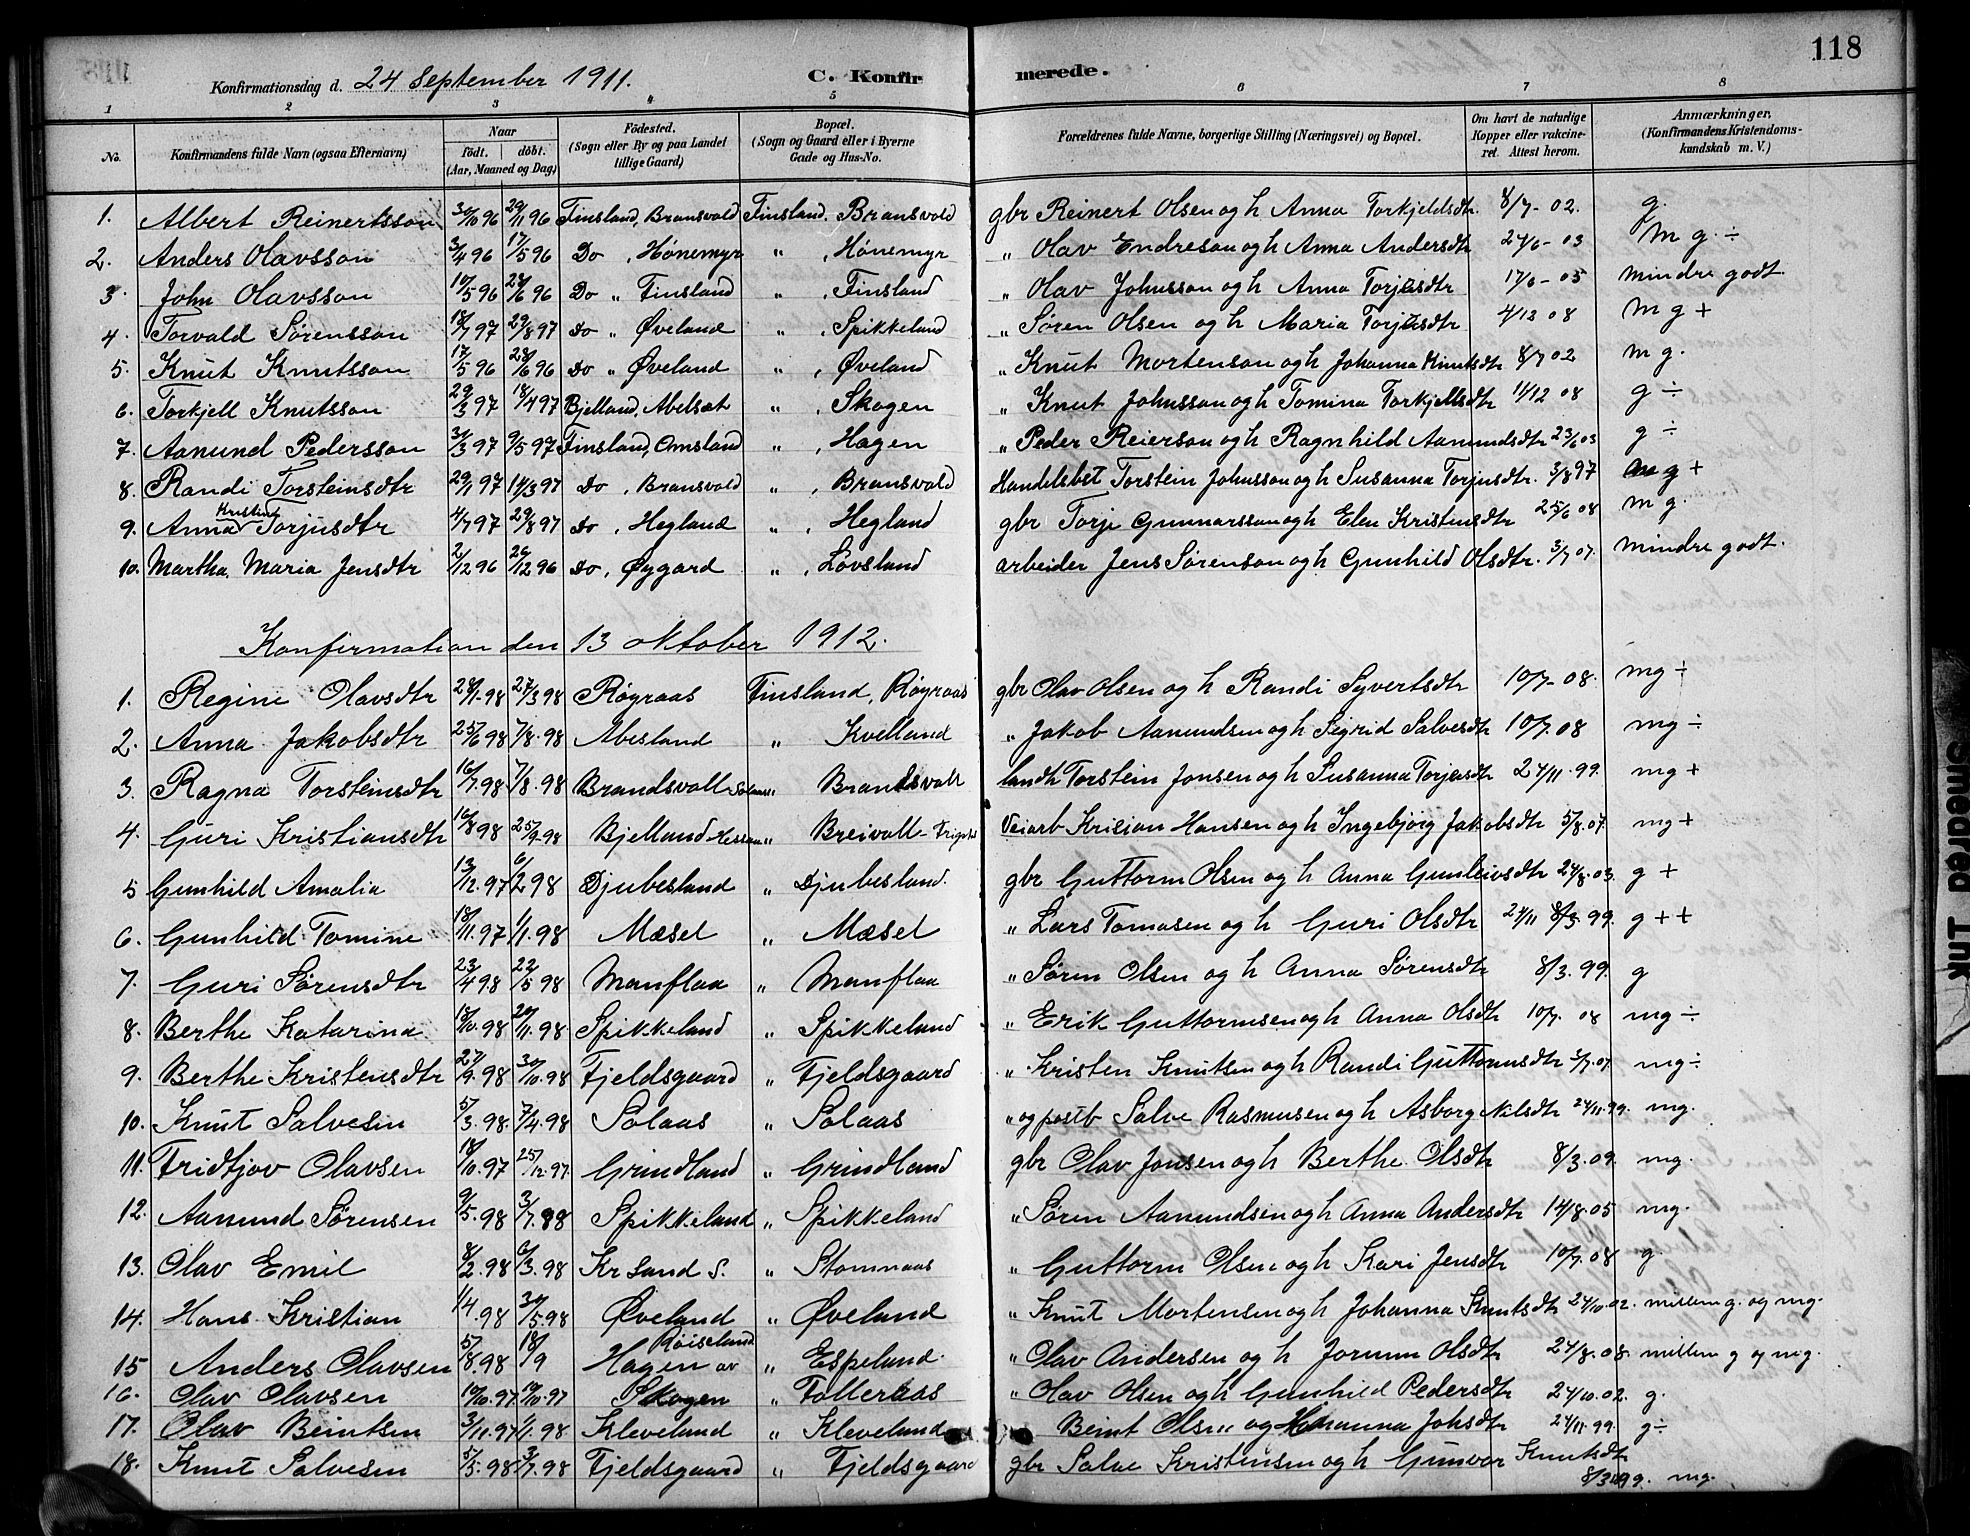 118
Konfirmationsdag d. 24 September 1911. C. Konfirmerede.
1 2 3 4 5 6 7 8
No. Konfirmandens fulde Navn (ogsaa Efternavn) Naar født. døbt. (Aar, Maaned og Dag) Fødested. (Sogn eller By og paa Landet tillige Gaard) Bopæl. (Sogn og Gaard eller i Byerne Gade og Hus-No. Forældrenes fulde Navne, borgerlige Stilling (Næringsvei) og Bopæl. Om havt de naturlige Kopper eller vakcineret. Attest herom. Anmærkninger, (Konfirmandens Kristendomskundskab m. V.)
1. Albert Reinertsson 30/10 96 29/11 96 Finsland, Bransvold Finsland. Bransvold gbr Reinert Olsen og h Anna Torkjeldsdtr. 8/7-02. g.
2. Anders Olavsson 3/4 96 17/5 96 Do , Hønemyr " , Hønemyr " Olav Endreson og h Anna Andersdtr 24/6-03 mg ÷
3. John Olavsson 10/5 96 28/6 96 Do " Finsland " , Finsland " Olav Johnsson og h Anna Torjusdtr 17/6-05 mindre godt.
4. Torvald Sørensson 18/7 97 29/8 97 Do " Øveland " , Spikkeland " Søren Olsen og h Maria Torjusdtr 4/12 08 mg +
5. Knut Knutsson 17/5 96 28/6 96 Do " Øveland " , Øveland " Knut Mortenson og h Johanna Knutsdtr 8/7 02 mg.
6. Torkjell Knutsson 29/3 97 18/4 97 Bjelland, Abelsæt " , Skogen " Knut Johnsson og h Tomina Torkjellsdtr 11/12 08 g ÷
7. Aanund Pedersson 31/3 97 9/5 97 Finsland, Omsland " , Hagen " Peder Reierson og h Ragnhild Aanundsdtr 23/6 03 g ÷
8. Randi Torsteinsdtr 29/1 97 14/3 97 Do , Bransvold " , Bransvold Handelsbet Torstein Johnsson og h Susanna Torjusdtr. 3/8 97 mg +
9. Anna Kristine Torjusdtr 4/7 97 29/8 97 Do , Hegland " , Hegland gbr Torje Gunnarsson og h Elen Kristensdtr 25/6 08 mg.
10. Martha Maria Jensdtr 2/12 96 26/12 96 Do , Øygard " , Lovsland arbeider Jens Sørenson og h Gunhild Olsdtr. 3/7 07. mindre godt.
Konfirmation den 13 oktober 1912.
1. Regine Olavsdtr 28/1-98 27/3 98 Røyraas Finsland, Røyraas gbr Olav Olsen og h Randi Syvertsdtr 10/7-08. mg ÷
2. Anna Jakobsdtr 25/6 98 7/8.98 Abesland " Kvelland " Jakob Aanundsen og h Sigrid Salvesdtr 10/7.08 mg ÷
3. Ragna Torsteinsdtr 16/7.98 7/8.98 Brandsvoll " Brandsvoll landh Torstein Jonsen og h Susanna Torjusdtr 24/11.99. mg +
4. Guri Kristiansdtr 16/8 98 25/9-98 Bjelland " Breivoll Veiarb Kristian Hansen og h Ingebjørg Jakobsdtr 5/8.07. mg +
5 Gunhild Amalia 13/12.97 6/2 98 Djubesland " Djubesland. gbr Guttorm Olsen og h Anna Gunleivsdtr 24/8.03. g +
6. Gunhild Tomine 18/11.97 1/1.98 Mæsel " Mæsel " Lars Tomasen og h Guri Olsdtr 24/11 8/3.99. g + +
7. Guri Sørensdtr 23/4 98 22/5 98 Manflaa " Manflaa " Søren Olsen og h Anna Sørensdtr 8/3.99. g
8. Berthe Katarina 18/10.98 20/11.98 Spikkeland " Spikkeland " Erik Guttormsen og h Anna Olsdtr 10/7 08 mg ÷
9. Berthe Kristensdtr 27/9.98 30/10.98 Fjeldsgaard " Fjeldsgaard " Kristen Knutsen og h Randi Guttormsdtr 3/7.07. mg ÷
10. Knut Salvesen 5/3.98. 7/4.98 Solaas " Solaas " og postb Salve Rasmusen og h Asborg Nilsdtr 24/11.99. mg.
11. Fridtjov Olavsen 18/10.97 25/12.97. Grindland " Grindland gbr Olav Jonsen og h Berthe Olsdtr 8/3.09. mg.
12. Aanund Sørensen 9/5.98 3/7.98 Spikkeland " Spikkeland " Søren Aanundsen og h Anna Andersdtr 14/8.05 mg.
13. Olav Emil 8/2.98 6/3.98 Kr Sand S. " Stomnaas " Guttorm Olsen og h Kari Jensdtr 10/7.08 g.
14. Hans Kristian 1/4.98 30/5.98 Øveland " Øveland " Knut Mortensen og h Johanna Knutsdtr 24/10.02. millem g. og mg.
15 Anders Olavsen 5/8.98 18/9 Hagen av Røisland " Espeland. " Olav Andersen og h Jorunn Olsdtr 24/8.08. millem g og mg.
16. Olav Olavsen 10/10.97 10/10.97 Skogen " Folleraas " Olav Olsen og h Gunhild Pedersdtr 24/10.02. g.
17. Olav Beintsen 3/11.97 1/1.98 Kleveland " Kleveland Beint Olsen og Johanna Johsdtr 24/11.99. g ÷
18. Knut Salvesen 5/5.98 3/7.98 Fjeldsgaard " Fjeldsgaard gbr Salve Kristensen og h Gunvor Knutsdtr 8/3 99. mg.
Smeared Ink